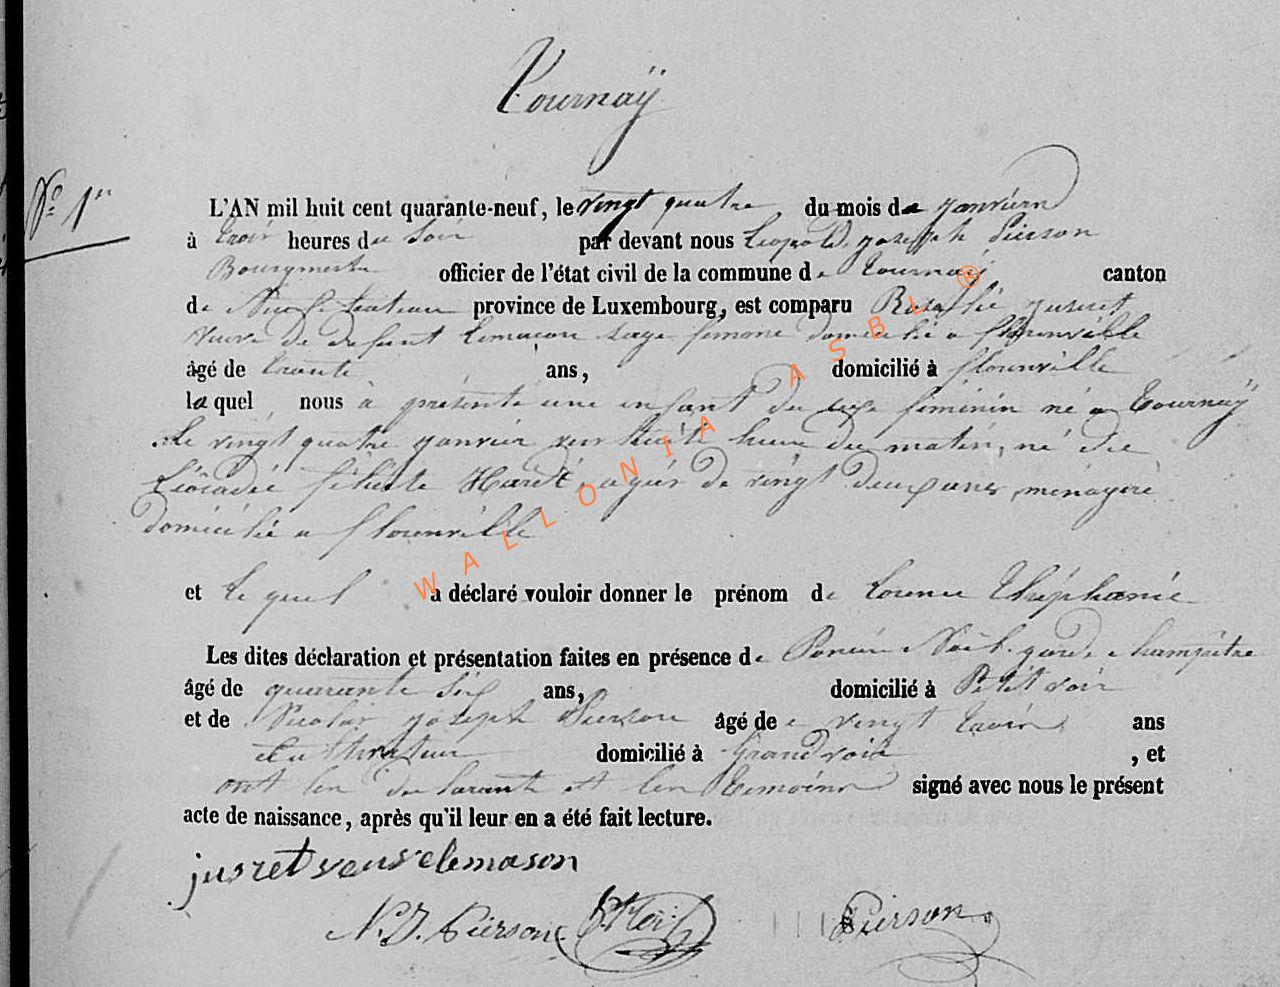 Tournaÿ
N° 1er
L'AN mil huit cent quarante-neuf, le vingt quatre du mois de janvier
à trois heures du soir par devant nous Léopold joseph Pierson
Bourgmestre officier de l'état civil de la commune de Tournaÿ canton
de Neufchateau province de Luxembourg, est comparu Rosalie jusret
veuve de defunt Lemacon sage femme domicilié a florenville
âgé de trente ans, domicilié à florenville
laquel nous à présenté une enfant du sexe féminin né a Tournaÿ
le vingt quatre janvier vers huite heure du matin, né die
Léocadie félicité agés de vingt deux ans, ménagère
domicilié a florenville
et Le quel a déclaré vouloir donner le prénom de Lorence
Les dites déclaration et présentation faites en présence de Noël garde champêtre
âgé de quarante six ans, domicilié à Petitvoir
et de Nicolas joseph Pierson âgé de vingt trois ans
Cultivateur domicilié à Grandvoir , et
ont les declarante et les temoins signé avec nous le présent
acte de naissance, après qu'il leur en a été fait lecture.
jusret veuve lemason
N. J. Pierson Pierson
WALLONIA ASBL ®